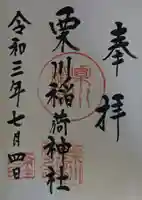 奉拝
栗川稲荷神社
令和三年七月四日